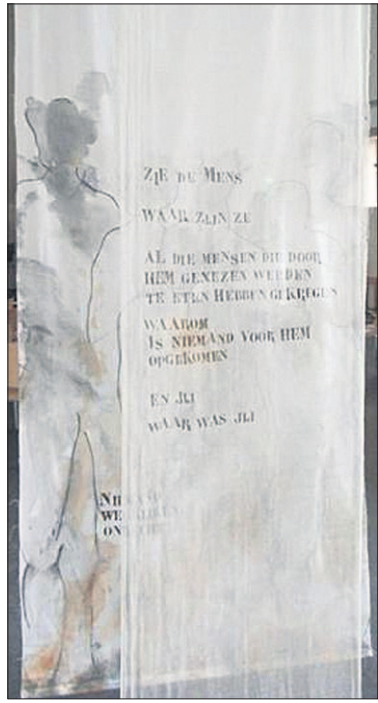 ZIE DE MENS
WAAR ZIJN ZE
AL DIE MENSEN DIE DOOR
HEM GENEZEN WERDEN
TE ETEN HEBBEN GEKREGEN
WAAROM
IS NIEMAND VOOR HEM
OPGEKOMEN
EN JIJ
WAAR WAS JIJ